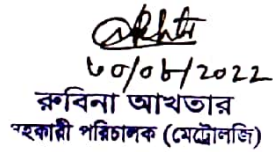 ৩০/০৮/2022
রুবিনা আখতার
সহকারী পরিচালক (মেট্রোলজি)